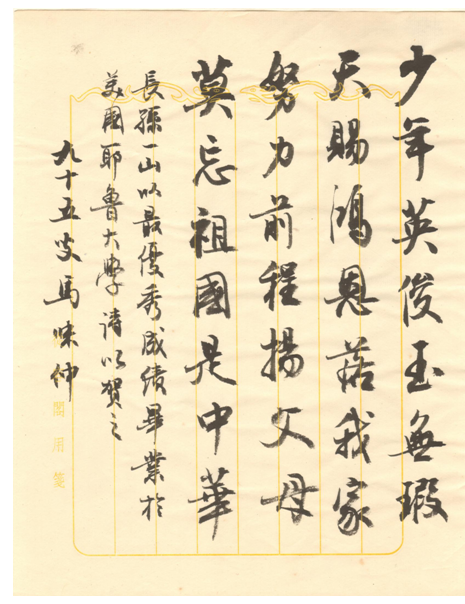 少年英俊玉無瑕
天賜鴻恩落我家
努力前程揚父母
莫忘祖國是中華
長孫一山以最優秀成績畢業於
美國耶魯大學詩以賀之
九十五叟馬味仲
閣用箋